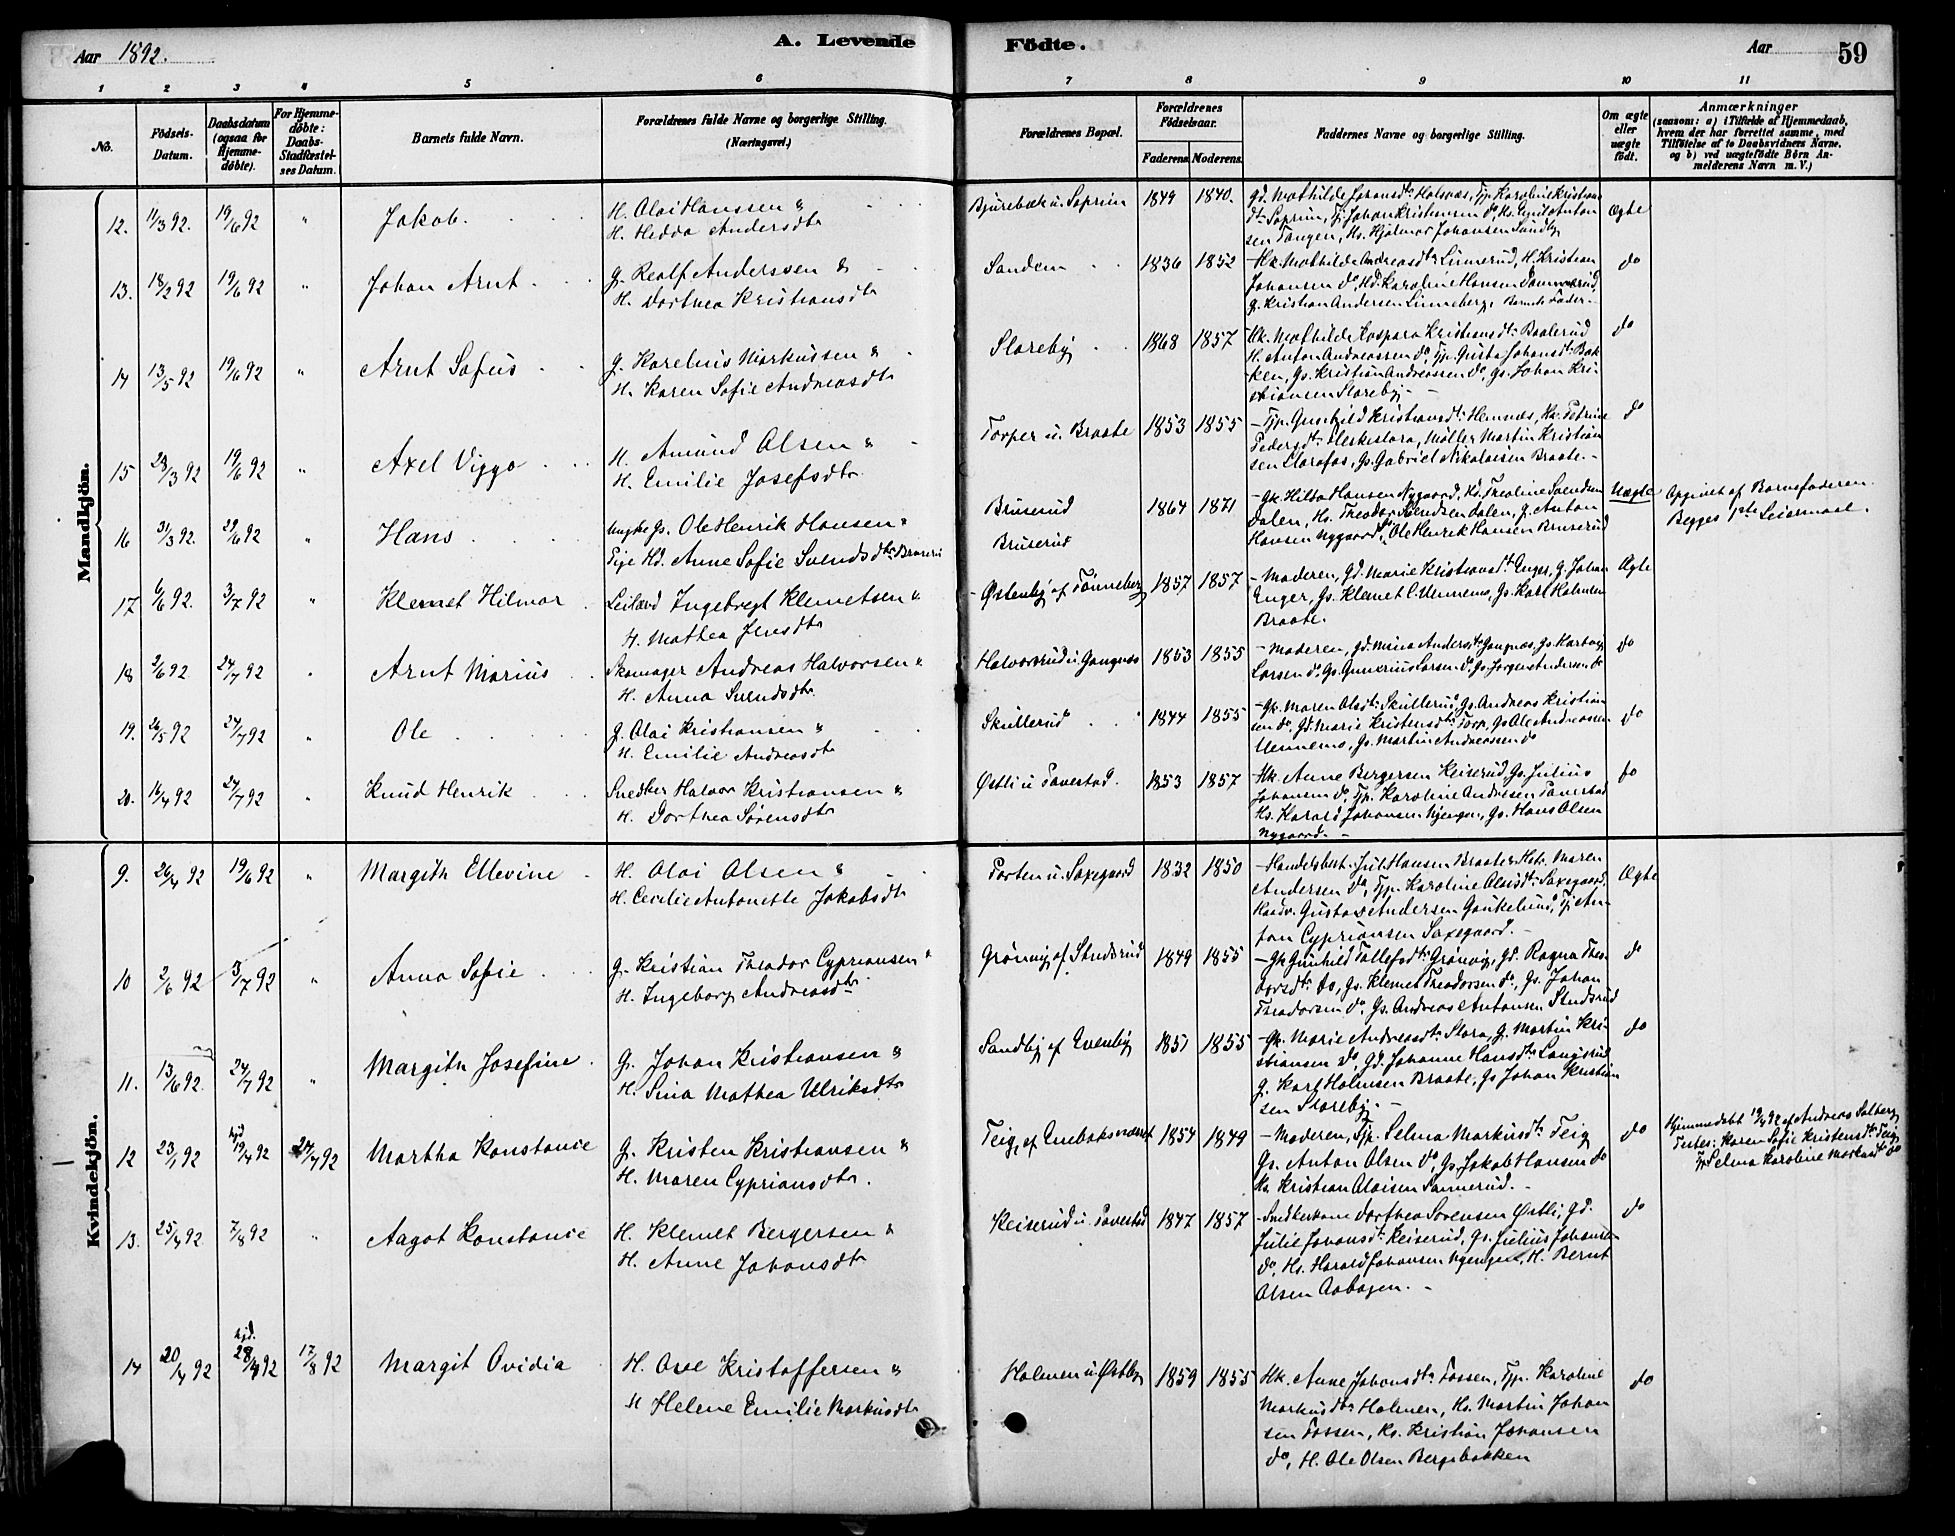 Aar 1892.
A. Levende Födte.
Aar
59
1 2 3 4 5 6 7 8 9 10 11
No.
Födsels-Datum.
Daabsdatum (ogsaa for Hjemme-döbte).
For Hjemme-döbte: Daabs-Stadfæstel-ses Datum.
Barnets fulde Navn.
Forældrenes fulde Navne og borgerlige Stilling. (Næringsvei.)
Forældrenes Bopæl.
Forældrenes Födselsaar.
Faderens. Moderens.
Faddernes Navne og borgerlige Stilling.
Om ægte eller uægte födt.
Anmærkninger
(saasom: a) i Tilfælde af Hjemmedaab, hvem der har forrettet samme, med Tilföielse af to Daabsvidners Navne, og b) ved uægtefödte Börn An-melderens Navn m. V.)
Mandkjön.
12. 11/3 92. 19/6 92 " Jakob. H. Olai Hanssen &
H. Hedda Andersdtr
Bjurebæk u. Soprim 1849 1840. Ægte
13. 18/2 92 19/6 92 " Johan Arnt G. Realf Anderssen &
H. Dorthea Kristiansdtr
Sandem 1836 1852 do
Johansen do, Hd. Karoline Hansen
G. Kristian Andersen Linneberg, Barnets Fader.
14 13/5 92 19/6 92 " Arnt Sofus G. Karelius Markussen &
H. Karen Sofie Andreasdtr
Storeby 1868 1857 do
H. Anton Andreassen do, Tp. Gusta Johansdtr Bak-
ken, Gs. Kristian Andreassen do, Gs. Johan Kri-
stiansen Storeby.
15 28/3 92 19/6 92 " Axel Viggo H. Amund Olsen &
H. Emilie Josefsdtr
Torper u. Braate 1853 1855 do
- Tp. Gunhild Kristiansdtr Hemnæs, Hk. Petrine
Pedersdtr Heskestora, Møller Martin Kristian
sen Storefos, Gs. Gabriel Nikolaisen Braate.
16 31/3 92. 29/6 92 " Hans Ungkr Gs. Ole Henrik Hansen &
Pige Hd. Anne Sofie Svendsdtr Bruserud
Bruserud
Bruserud
1864 1871 - Gk. Hilda Hansen Nygaard, Hd. Theoline Svendsen
Dalen, Hs. Theodor Svendsen Dalen, G. Anton
Hansen Nygaard, Ole Henrik Hansen Bruserud
Uægte Opgivet af Barnefaderen.
Begges 1ste Leiermaal.
17 6/6 92. 3/7 92 " Klemet Hilmar Leilænd Ingebregt Klemetsen &
H. Mathea Jensdtr
Østenby af Tønneberg 1857 1857 - Moderen, Gd. Marie Kristiansdtr Enger, G. Johan
Enger, Gs. Klemet C. Mennems, Gs. Karl Holmsen
Braate.
Ægte
18 2/6 92 24/7 92 " Arnt Marius Skomager Andreas Halvorsen &
H. Anna Svendsdtr
Halvorsrud u. Gangnæs 1853 1855 - Moderen, Gd. Mina Andersdtr Gangnæs, Gs. Hartvig
Larsen do, Gs. Gunerius Larsen do, Gs. Jørgen Andersen do
do
19. 26/5 92 24/7 92 " Ole G. Olai Kristiansen &
H. Emilie Andreasdtr
Skullerud 1844 1855 - Gk. Maren Olsdtr Skullerud, Gs. Andreas Kristian
sen do, Gd. Marie Kristensdtr Torp, Gs. Ole Andreassen
Mennems, Gs. Martin Andreassen do
do
20. 16/4 92 24/7 92 " Knud Henrik Snedker Halvor Kristiansen &
H. Dorthea Sørensdtr
Østli u Tavestad. 1853 1857 - Hk. Anne Bergersen Keiserud, Gs. Julius
Johansen do, Tp. Karoline Andresen Tavestad
Hs. Harald Johansen Njengen, Gs. Hans Olsen
Nygaard. -
do
Kvindekjön.
9. 26/4 92 19/6 92 " Margith Ellevine H. Olai Olsen &
H. Cecilie Antonette Jakobsdtr
Porten u. Saxegaard 1832 1850 - Handelsbest. Juli Hansen Braate, Hk. Maren
Andersen do, Tp. Karoline Olaisdtr Saxegaard,
Haadv. Gustav Andersen Gaukelund, Tj. An-
ton Cypriansen Saxegaard. -
Ægte
10 2/6 92 3/7 92 " Anna Sofie G. Kristian Theodor Cypriansen &
H. Ingeborg Andreasdtr
Grønvig af Studsrud 1849 1855 - Gk Gunhild Tollefsdtr Grønvig, Gd. Ragna Theo-
dorsdtr do, Gs. Klemet Theodorsen do, Gs. Johan
Theodorsen do, Gs. Andreas Antonsen Studsrud
do
11. 13/6 92. 24/7 92 " Margith Josefine G. Johan Kristiansen &
H. Lina Mathea Ulriksdtr
Sandby af Evenby 1851 1855 - Gk. Marie Andreasdtr Stora, G. Martin Kri-
stiansen do, Gd. Johanne Hansdtr Langsrud
G. Karl Holmsen Braate, Gs Johan Kristian
sen Storeby. -
do
12 23/1 92 hjd. 19/4 92 24/7 92 Martha Konstance G. Kristen Kristiansen &
H. Maren Cypriansdtr.
Teig af Enebaksnæset 1854 1849 - Moderen, Tjp. Selma Markusdtr Teig
Gs. Anton Olsen do, Gs. Jakob Hansen do
Hs. Kristian Olaisen Sannerud. -
do Hjemmedøbt 19/4 92 af Andreas Solberg
Testes: Karen Sofie Kristensdtr Teig,
Tp Selma Karoline Markusdtr do
13. 25/4 92. 7/8 92 " Aagot Konstance H. Klemet Bergersen &
H. Anne Johansdtr
Keiserud u. Tavestad 1847 1857 - Snedkerkone Dorthea Sørensen Østli, Gd.
Julie Johansdtr Keiserud, Gs. Julius Johansen
do, Hs. Harald Johansen Njengen, H. Bernt
Olsen Aabogen. -
do
14 20/4 92 hjd. 28/4 92 17/8 92 Margit Ovidia H. Ove Kristoffersen &
H Helene Emilie Markusdtr
Holmen u Østby 1859 1855 Hk. Anne Johansdtr Fossen, Tjp. Karoline
Markusdtr Holmen, Hs. Martin Johan
sen Fossen, Hs. Kristian Johansen
do, H. Ole Olsen Bergsbakken
do